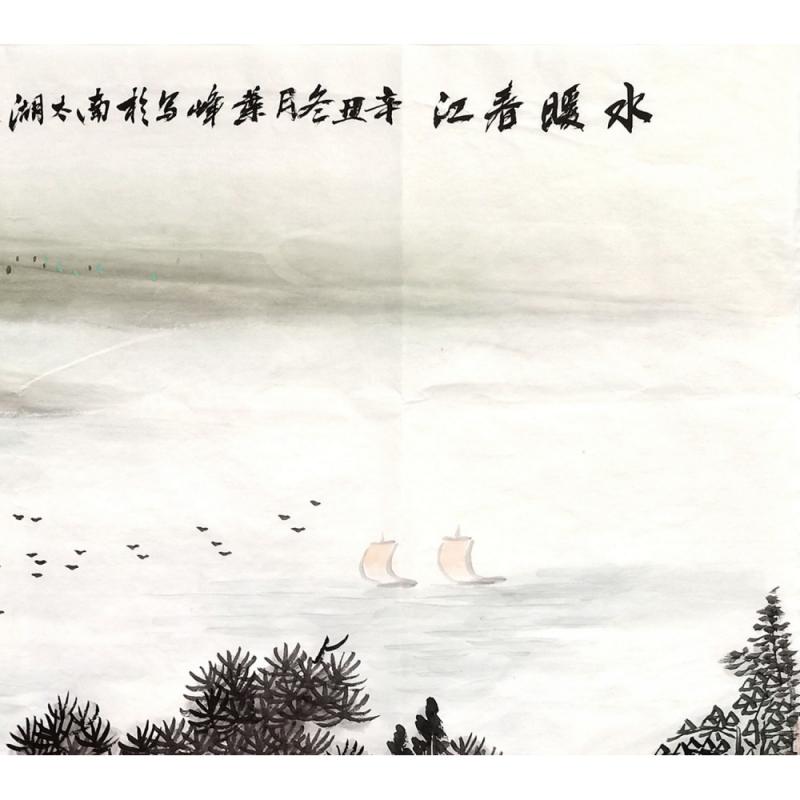 水暖春江 辛丑冬月葉峰写於南太湖